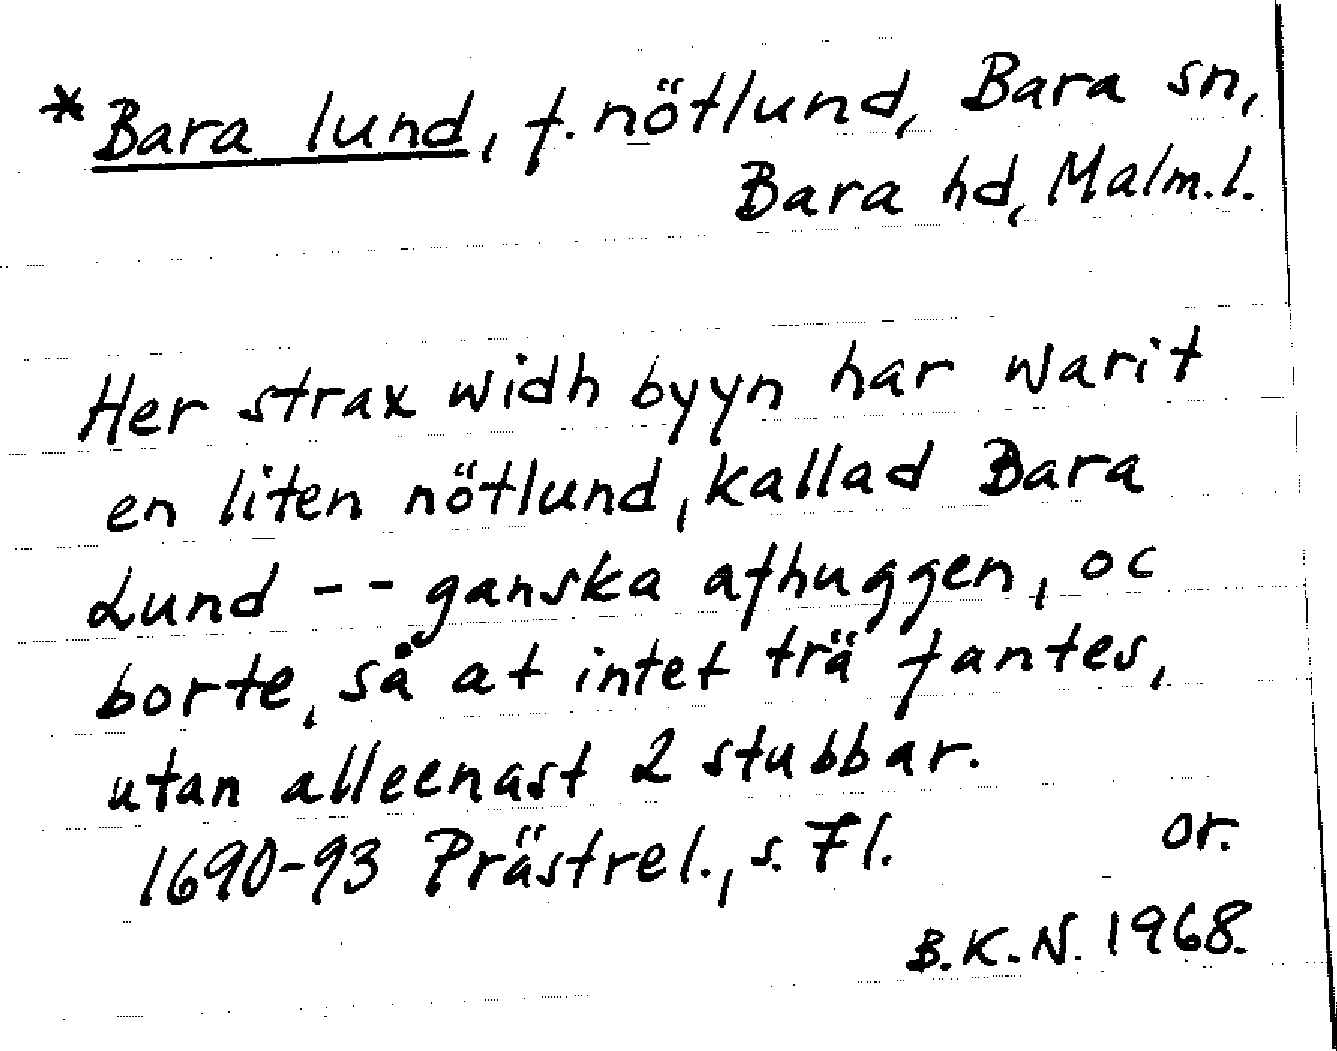 *Bara lund, f. nötlund, Bara sn,
Bara hd, Malm.l.
Her strax widh byyn har warit
en liten nötlund, kallad Bara
Lund -- ganska afhuggen, oc
borte, så at intet trä fantes,
utan alleenast 2 stubbar.
1690-93 Prästrel., s. 71. or.
B.K.N. 1968.